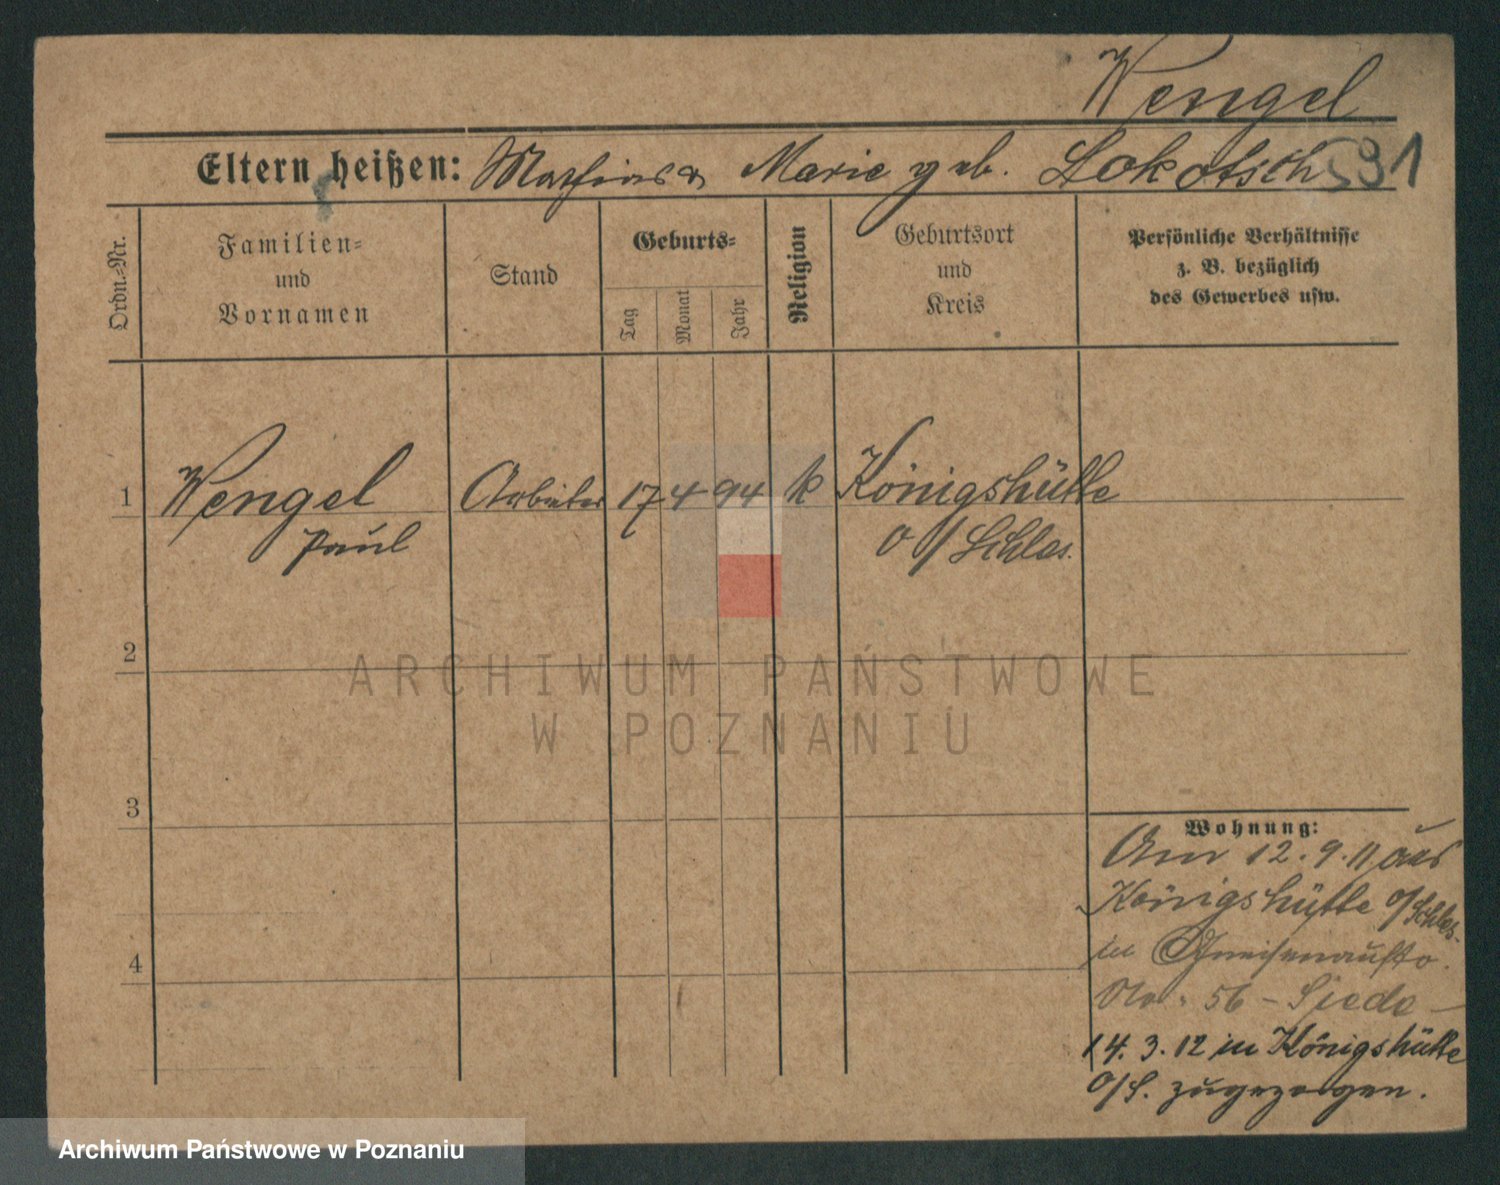 Wengel
Eltern heißen: Mathias & Marie geb. Lokotsch 591
Ordn.-Nr.
Familien-
und
Vornamen
Stand
Geburts-
Tag
Monat
Jahr
Religion
Geburtsort
und
Kreis
Persönliche Verhältnisse
z. B. bezüglich
des Gewerbes usw.
1 Wengel Arbeiter 17 4 94 k Königshütte
Paul O/Schles.
2
3
4
Wohnung:
Am 12.9.11 aus
Königshütte O/Schles.
in Gneisenaustr.
Nr. 56 –
14.3.12 in Königshütte
O/S. zugezogen.
ARCHIWUM PAŃSTWOWE
W POZNANIU
Archiwum Państwowe w Poznaniu